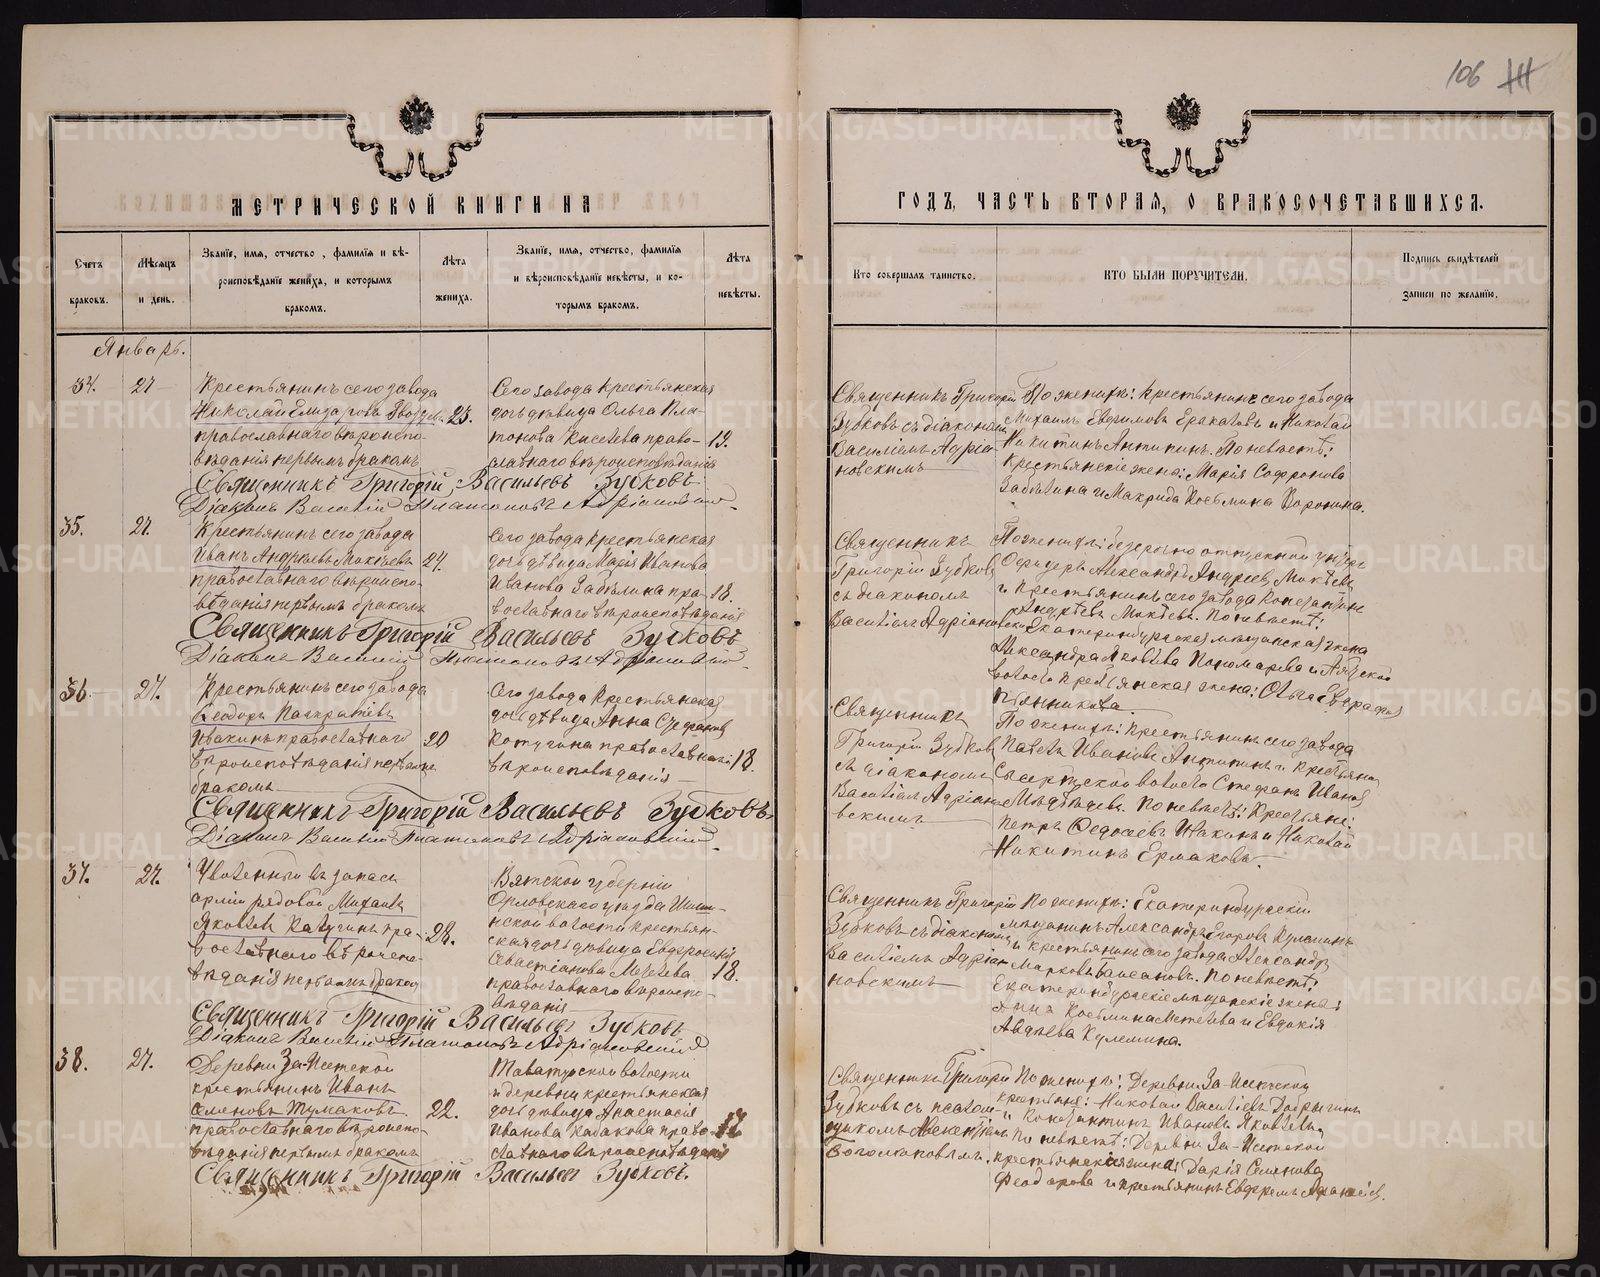 106
МЕТРИЧЕСКОЙ КНИГИ НА
ГОДЪ, ЧАСТЬ ВТОРАЯ, О БРАКОСОЧЕТАВШИХСЯ.
Счетъ браковъ.
Мѣсяцъ и день.
Званіе, имя, отчество, фамилія и вѣ-
роисповѣданіе жениха, и которымъ
бракомъ.
Лѣта
жениха.
Званіе, имя, отчество, фамилія
и вѣроисповѣданіе невѣсты, и ко-
торымъ бракомъ.
Лѣта
невѣсты.
Кто совершалъ таинство.
КТО БЫЛИ ПОРУЧИТЕЛИ.
Подпись свидѣтелей
записи по желанію.
Январь.
34.
27
Крестьянинъ сего завода
Николай Елизаровъ
23.
православнаго вѣроиспо-
вѣданія первымъ бракомъ
Сего завода крестьянская
дочь дѣвица Ольга Пла-
тонова Киселева право-
19.
славнаго вѣроисповѣданія
Священникъ Григорій Васильевъ Зубковъ.
Діаконъ Василій Платоновъ Адріановскій
Священникъ Григорій
Зубковъ съ діакономъ
Василіемъ Адріа-
новскимъ
По женихѣ: крестьянинъ сего завода
Михаилъ Евфимовъ и Николай
Никитинъ Антипинъ. По невѣстѣ:
Крестьянскіе жены: Марія Софронова
Забѣлина и Макрида Козьмина Воронина.
35.
27.
Крестьянинъ сего завода
Иванъ Андреевъ Мокѣевъ
24.
православнаго вѣроиспо-
вѣданія первымъ бракомъ
Сего завода крестьянская
дочь дѣвица Марія Иванова
Иванова Забѣлина пра-
18.
вославнаго вѣроисповѣданія
Священникъ Григорій Васильевъ Зубковъ
Діаконъ Василій Платоновъ Адріановскій
Священникъ
Григорій Зубковъ
съ діакономъ
Василіемъ Адріановскимъ
По женихѣ: безсрочно отпускной унтеръ
Офицеръ Александръ Андреевъ Мокѣевъ
и крестьянинъ сего завода Константинъ
Андреевъ Мокѣевъ. По невѣстѣ:
Екатеринбургская мѣщанская жена
Александра Яковлева Пономарева и
волости крестьянская жена: Ольга Евграфова
36.
27.
Крестьянинъ сего завода
Ѳеодоръ Панкратіевъ
Ивакинъ православнаго
20
вѣроисповѣданія первымъ
бракомъ
Сего завода крестьянская
дочь дѣвица Анна Стефанова
Котугина православнаго
18.
вѣроисповѣданія
Священникъ Григорій Васильевъ Зубковъ
Діаконъ Василій Платоновъ Адріановскій
Священникъ
Григорій Зубковъ
съ діакономъ
Василіемъ Адріано-
вскимъ
По женихѣ: крестьянинъ сего завода
Павелъ Ивановъ Антипинъ и крестьянинъ
Сысертской волости Стефанъ Ивановъ
Медвѣдевъ. По невѣстѣ: Крестьяне:
Петръ Ѳедосѣевъ Ивакинъ и Николай
Никитинъ Ермаковъ.
37.
27.
Уволенный въ запасъ
арміи рядовой Михаилъ
Яковлевъ Калугинъ пра-
28.
вославнаго вѣроиспо-
вѣданія первымъ бракомъ
Вятской губерніи
Орловскаго уѣзда
нской волости крестьян-
ская дочь дѣвица Евфросинія
Севастіанова Мезенева
18.
православнаго вѣроиспо-
вѣданія
Священникъ Григорій Васильевъ Зубковъ
Діаконъ Василій Платоновъ Адріановскій
Священникъ Григорій
Зубковъ съ діакономъ
Василіемъ Адріа-
новскимъ
По женихѣ: Екатеринбургскій
мѣщанинъ Александръ Егоровъ Кулеминъ
и крестьянинъ сего завода Александръ
Марковъ. По невѣстѣ:
Екатеринбургскіе мѣщанскіе жены:
Анна Козьмина и Евдокія
Авдѣева Кулемина.
38.
27.
Деревни За-Исетской
крестьянинъ Иванъ
Семеновъ Тумаковъ
22.
православнаго вѣроиспо-
вѣданія первымъ бракомъ
Таватуйской волости
и деревни крестьянская
дочь дѣвица Анастасія
Иванова Казакова право-
17
славнаго вѣроисповѣданія
Священникъ Григорій Васильевъ Зубковъ.
Священникъ Григорій
Зубковъ съ псалом-
щикомъ
Богомоловымъ.
По женихѣ: Деревни За-Исетской
крестьяне: Николай Василіевъ Добрыгинъ
и Константинъ Ивановъ Яковлевъ.
По невѣстѣ: Деревни За-Исетской
крестьянская жена: Дарія Семенова
Феодорова и крестьянинъ Евфремъ
METRIKI.GASO-URAL.RU